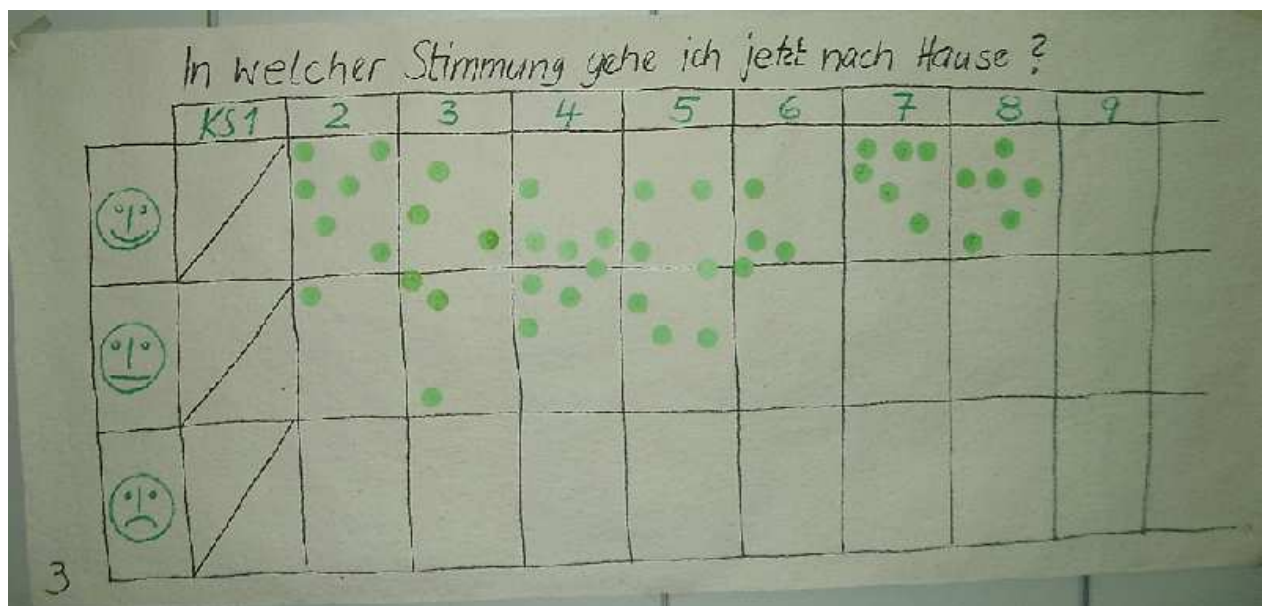 In welcher Stimmung gehe ich jetzt nach Hause ?
KS1 2 3 4 5 6 7 8 9
3